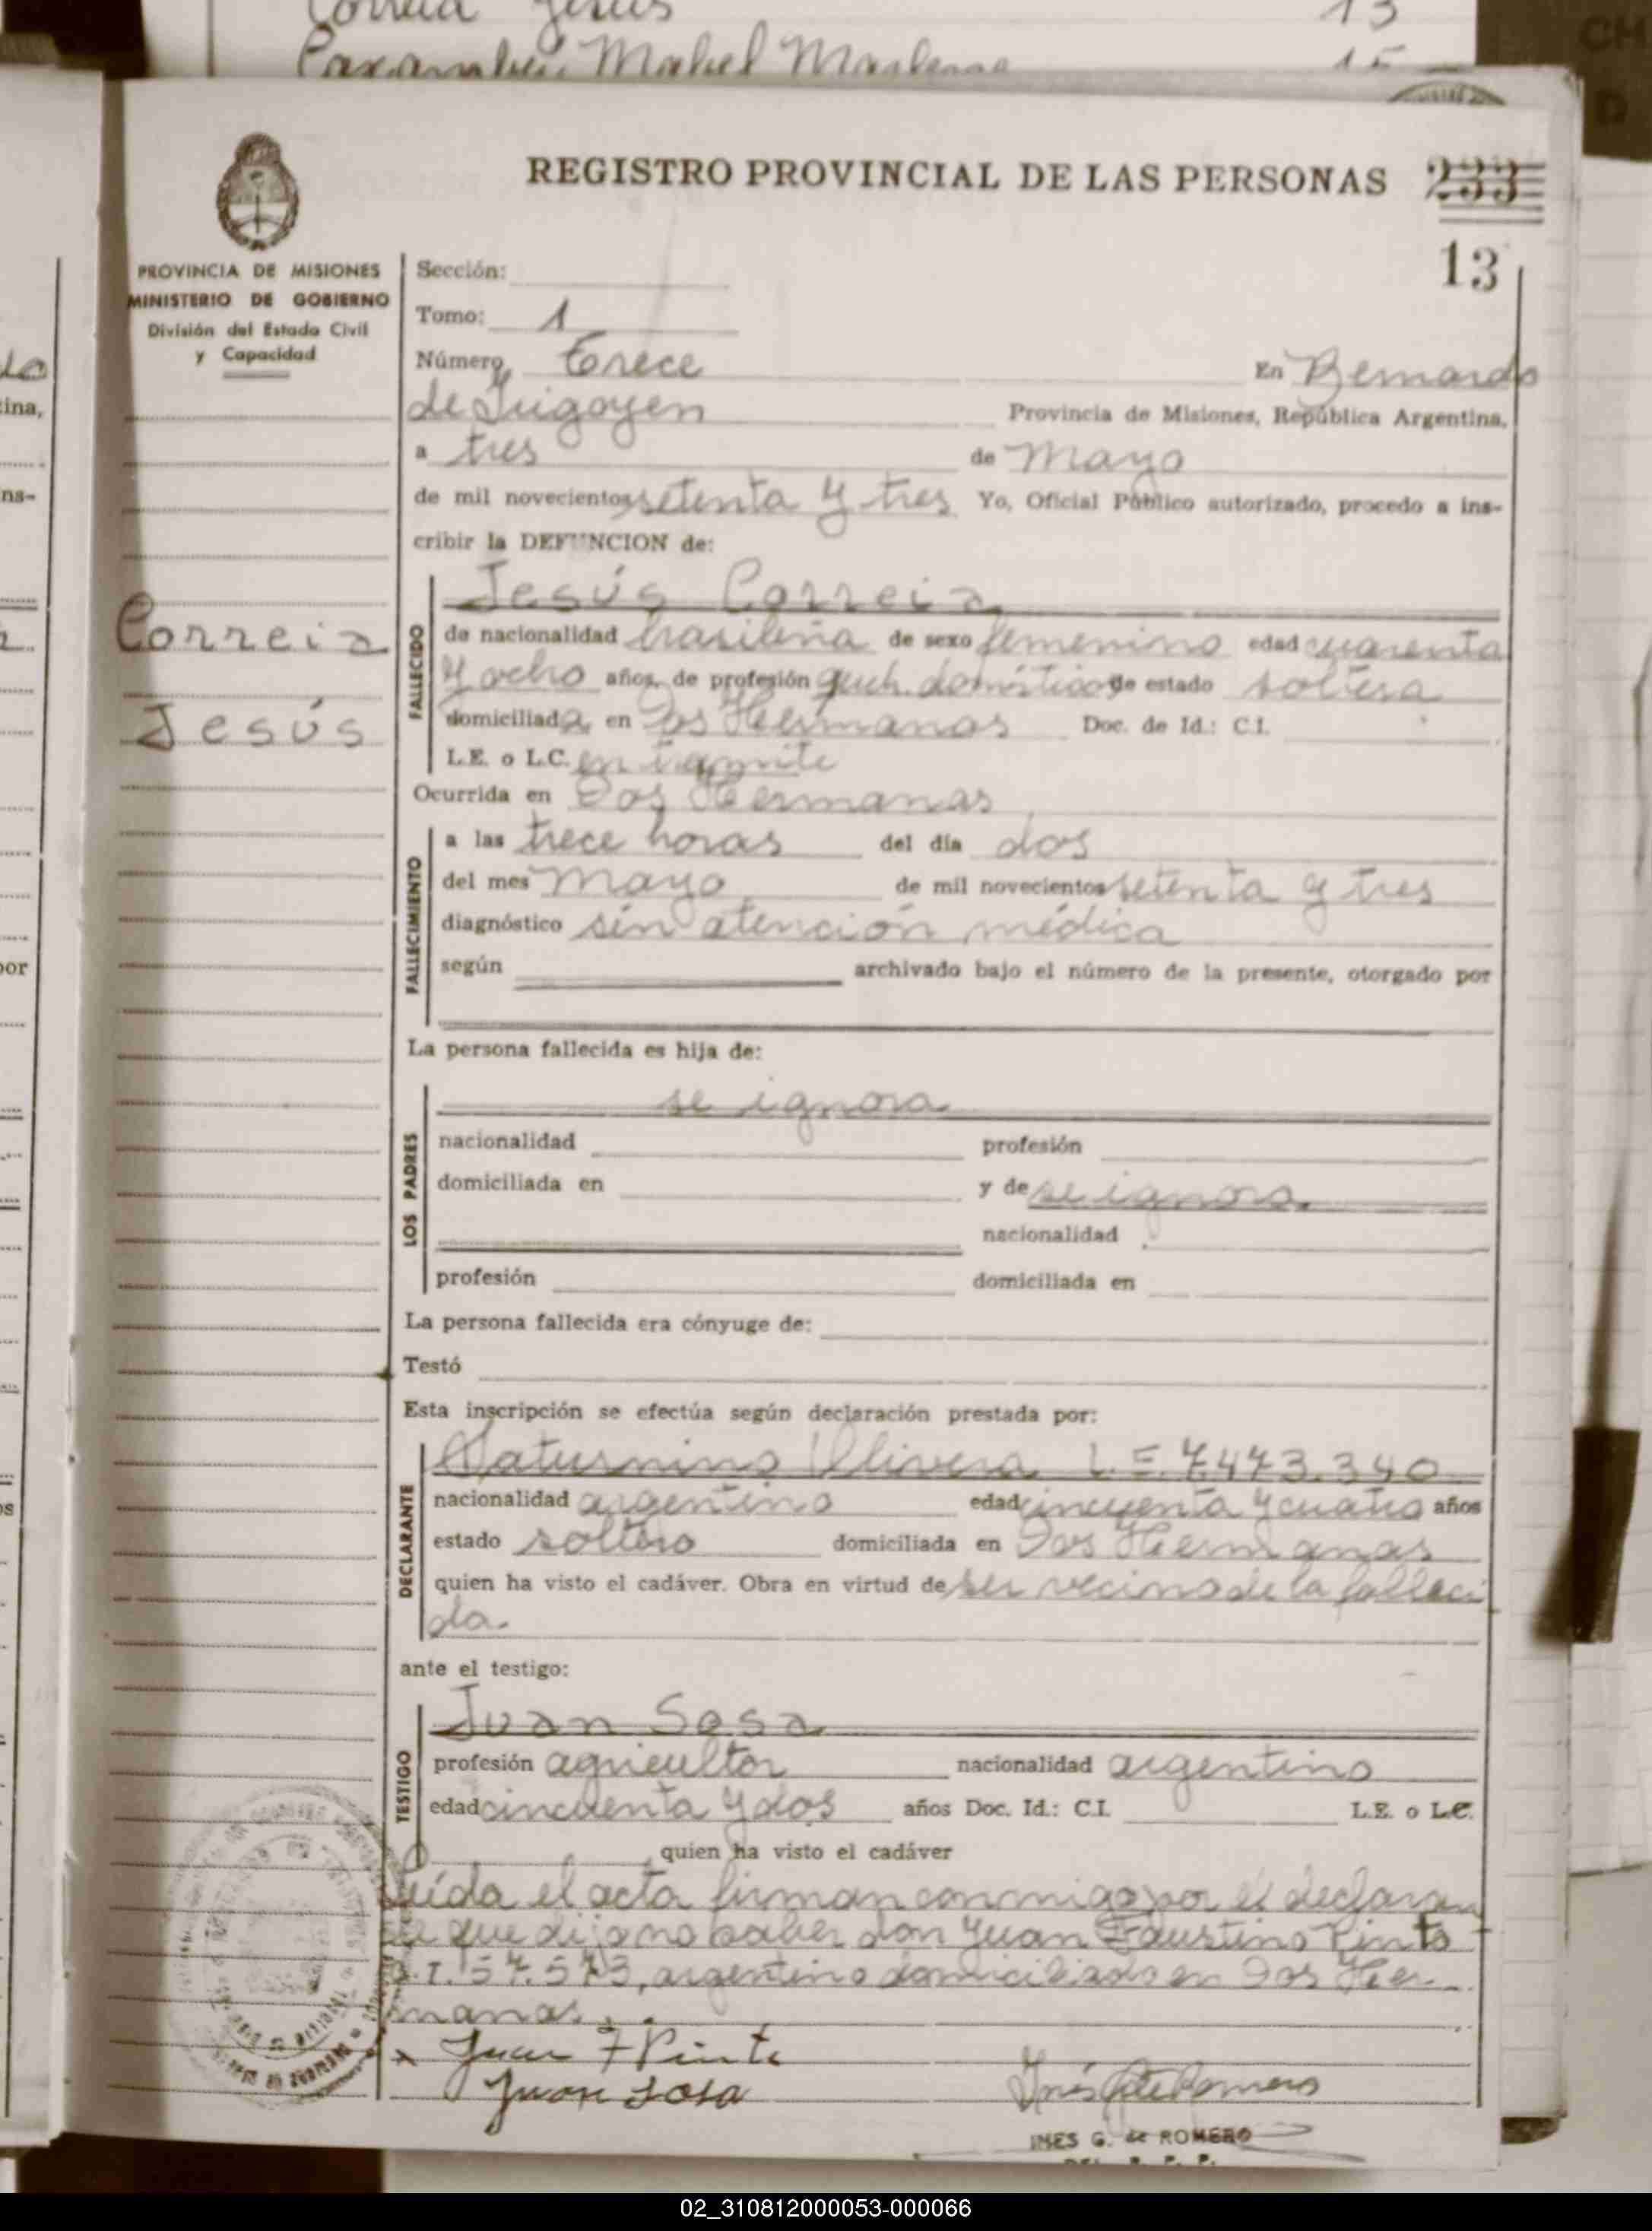 Correia Jesus 13
Mabel Marlene 15
REGISTRO PROVINCIAL DE LAS PERSONAS 233
13
PROVINCIA DE MISIONES
MINISTERIO DE GOBIERNO
División del Estado Civil
y Capacidad
Sección:
Tomo: 1
Número, trece En Bernardo
de Irigoyen Provincia de Misiones, República Argentina,
a tres de Mayo
de mil novecientos setenta y tres Yo, Oficial Público autorizado, procedo a ins-
cribir la DEFUNCION de:
Correia
Jesús
FALLECIDO
Jesús Correia
de nacionalidad brasileña de sexo femenino edad cuarenta
y ocho años, de profesión queh. domésticos de estado soltera
domiciliada en Dos Hermanas Doc. de Id.: C.I.
L.E. o L.C. en trámite
Ocurrida en Dos Hermanas
FALLECIMIENTO
a las trece horas del día dos
del mes Mayo de mil novecientos setenta y tres
diagnóstico sin atención médica
según archivado bajo el número de la presente, otorgado por
La persona fallecida es hija de:
LOS PADRES
se ignora
nacionalidad profesión
domiciliada en y de se ignora.
nacionalidad
profesión domiciliada en
La persona fallecida era cónyuge de:
Testó
Esta inscripción se efectúa según declaración prestada por:
DECLARANTE
Saturnino Olivera L.E. 7.473.340
nacionalidad argentino edad cincuenta y cuatro años
estado soltero domiciliada en Dos Hermanas
quien ha visto el cadáver. Obra en virtud de ser vecino de la falleci
da.
ante el testigo:
TESTIGO
Juan Sosa
profesión agricultor nacionalidad argentino
edad cincuenta y dos años Doc. Id.: C.I. L.E. o L.C.
quien ha visto el cadáver
Leída el acta firman conmigo por el declaran
te que dijo no saber don Juan Faustino Pinto
C.I. 57.573, argentino domiciliado en Dos Her
manas.
x Juan F Pinto
Juan Sosa
Inés G de Romero
INES G. de ROMERO
02_310812000053-000066